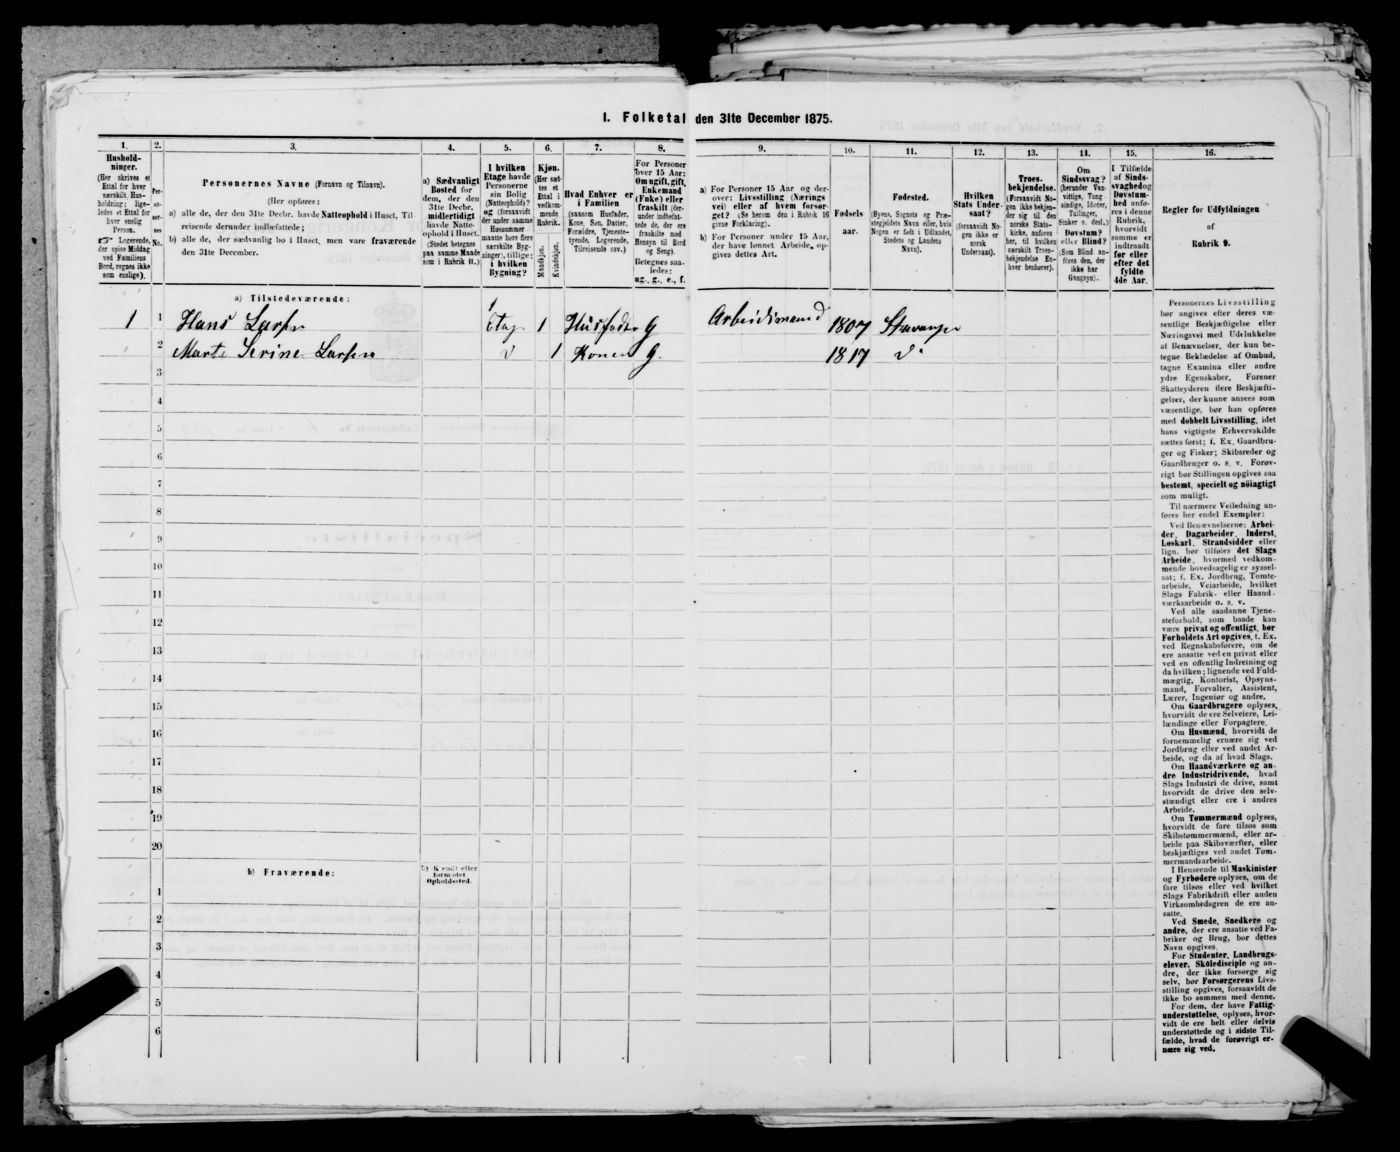 1. Folketal den 31te December 1875.
1. 2. 3. 4. 5. 6. 7. 8. 9. 10. 11. 12. 13. 14. 15. 16.
Hushold-
ninger.
(Her skrives et
Ettal for hver
særskilt Hus-
holdning; lige-
ledes et Ettal for
hver enslig
Person.
Logerende,
der spise Middag
ved Familiens
Bord, regnes ikke
som enslige).
Per-
so-
ner-
nes
No.
Personernes Navne (Fornavn og Tilnavn).
(Her opføres;
a) alle de, der den 31te Decbr. havde Natteophold i Huset, Til-
reisende derunder indbefattede;
b) alle de, der sædvanlig bo i Huset, men vare fraværende
den 31te December.
a) Sædvanligt
Bosted for
dem, der den
31te Decbr.
midlertidigt
havde Natte-
ophold i Huset.
(Stedet betegnes
paa samme Maade
som i Rubrik 11.)
I hvilken
Etage havde
Personerne
sin Bolig
(Natteophold)?
og (forsaavidt
der under samme
Husnummer
maatte høre flere
særskilte Byg-
ninger), tillige:
i hvilken
Bygning?
Kjøn.
(Her sæt-
tes et
Ettal i
vedkom-
mende
Rubrik.
Mandkjøn.
Kvindekjøn.
Hvad Enhver er
i Familien
(saasom Husfader,
Kone, Søn, Datter,
Forældre, Tjeneste-
tyende, Logerende,
Tilreisende osv.).
For Personer
over 15 Aar:
Om ugift, gift,
Enkemand
(Enke) eller
fraskilt (der-
under indbefat-
tede de, der ere
fraskilte med
Hensyn til Bord
og Seng).
Betegnes saa-
ledes:
ug., g., e., f.
a) For Personer 15 Aar og der-
over: Livsstilling (Nærings
vei) eller af hvem forsør-
get? (Se herom den i Rubrik 16
givne Forklaring).
b) For Personer under 15 Aar,
der have lønnet Arbeide, op-
gives dettes Art.
Fødsels-
aar.
Fødested.
(Byens, Sognets og Præ-
stegjeldets Navn eller, hvis
Nogen er født i Udlandet,
Stedets og Landets
Navn).
Hvilken
Stats Under-
saat?
(forsaavidt No-
gen ikke er
norsk
Undersaat).
Troes-
bekjendelse.
(Forsaavidt No-
gen ikke bekjen-
der sig til den
norske Stats-
kirke, anføres
her, til hvilken
særskilt Troes-
bekjendelse En-
hver henhører).
Om
Sindssvag?
(herunder Van-
vittige, Tung-
sindige, Idioter,
Tullinger,
Sinker o. desl.)
Døvstum?
eller Blind?
(Som Blind an-
føres den, der
ikke har
Gangsyn).
I Tilfælde
af Sinds-
svaghed og
Døvstum-
hed anfø-
res i denne
Rubrik,
hvorvidt
samme er
indtraadt
før eller
efter det
fyldte
4de Aar.
Regler for Udfyldningen
af
Rubrik 9.
a) Tilstedeværende:
1 1 Hans Larsen 1 Etag 1 Husfader G Arbeidsmand 1807 Stavanger
2 Marte Serine Larsen 1 Konen G. 1817
3
4
5
6
7
8
9
10
11
12
13
14
15
16
17
18
19
20
b) Fraværende:
b) Kjendt eller
formodet
Opholdssted.
1
2
3
4
5
6
Personernes Livsstilling
bør angives efter deres væ-
sentlige Beskjæftigelse eller
Næringsvei med Udelukkelse
af Benævnelser, der kun be-
tegne Beklædelse af Ombud,
tagne Examina eller andre
ydre Egenskaber. Forener
Skatteyderen flere Beskjæfti-
gelser, der kunne ansees som
væsentlige, bør han opføres
med dobbelt Livsstilling, idet
hans vigtigste Erhvervskilde
sættes først; f. Ex. Gaardbru-
ger og Fisker; Skibsreder og
Gaardbruger o. s. v. Forøv-
rigt bør Stillingen opgives saa
bestemt, specielt og nöiagtigt
som muligt.
Til nærmere Veiledning an-
føres her endel Exempler:
Ved Benævnelserne: Arbei-
der, Dagarbeider, Inderst,
Løskarl, Strandsidder eller
lign. bør tilføies det Slags
Arbeide, hvormed vedkom-
mende hovedsagelig er syssel-
sat; f. Ex. Jordbrug, Tomte-
arbeide, Veiarbeide, hvilket
Slags Fabrik- eller Haand-
værksarbeide o. s. v.
Ved alle saadanne Tjene-
steforhold, som baade kan
være privat og offentligt, bør
Forholdets Art opgives, f. Ex.
ved Regnskabsførere, om de
ere ansatte ved en privat eller
ved en offentlig Indretning og
da hvilken; lignende ved Fuld-
mægtig, Kontorist, Opsyns-
mand, Forvalter, Assistent,
Lærer, Ingeniør og andre.
Om Gaardbrugere oplyses,
hvorvidt de ere Selveiere, Lei-
lændinge eller Forpagtere.
Om Husmænd, hvorvidt de
fornemmelig ernære sig ved
Jordbrug eller ved andet Ar-
beide, og da af hvad Slags.
Om Haandværkere og an-
dre Industridrivende, hvad
Slags Industri de drive, samt
hvorvidt de drive den selv-
stændigt eller ere i andres
Arbeide.
Om Tømmermænd oplyses,
hvorvidt de fare tilsøs som
Skibstømmermænd, eller ar-
beide paa Skibsværfter, eller
beskjæftiges ved andet Tøm-
mermandsarbeide.
I Henseende til Maskinister
og Fyrbødere oplyses, om de
fare tilsøs eller ved hvilket
Slags Fabrikdrift eller anden
Virksomhedsgren de ere an-
satte.
Ved Smede, Snedkere og
andre, der ere ansatte ved Fa-
briker og Brug, bør dettes
Navn opgives.
For Studenter, Landbrugs-
elever, Skoledisciple og an-
dre, der ikke forsørge sig
selv, bør Forsørgerens Livs-
stilling opgives, forsaavidt de
ikke bo sammen med denne.
For dem, der have Fattig-
understøttelse, oplyses, hvor-
vidt de ere helt eller delvis
understøttede og i sidste Til-
fælde, hvad de forøvrigt er-
nære sig ved.